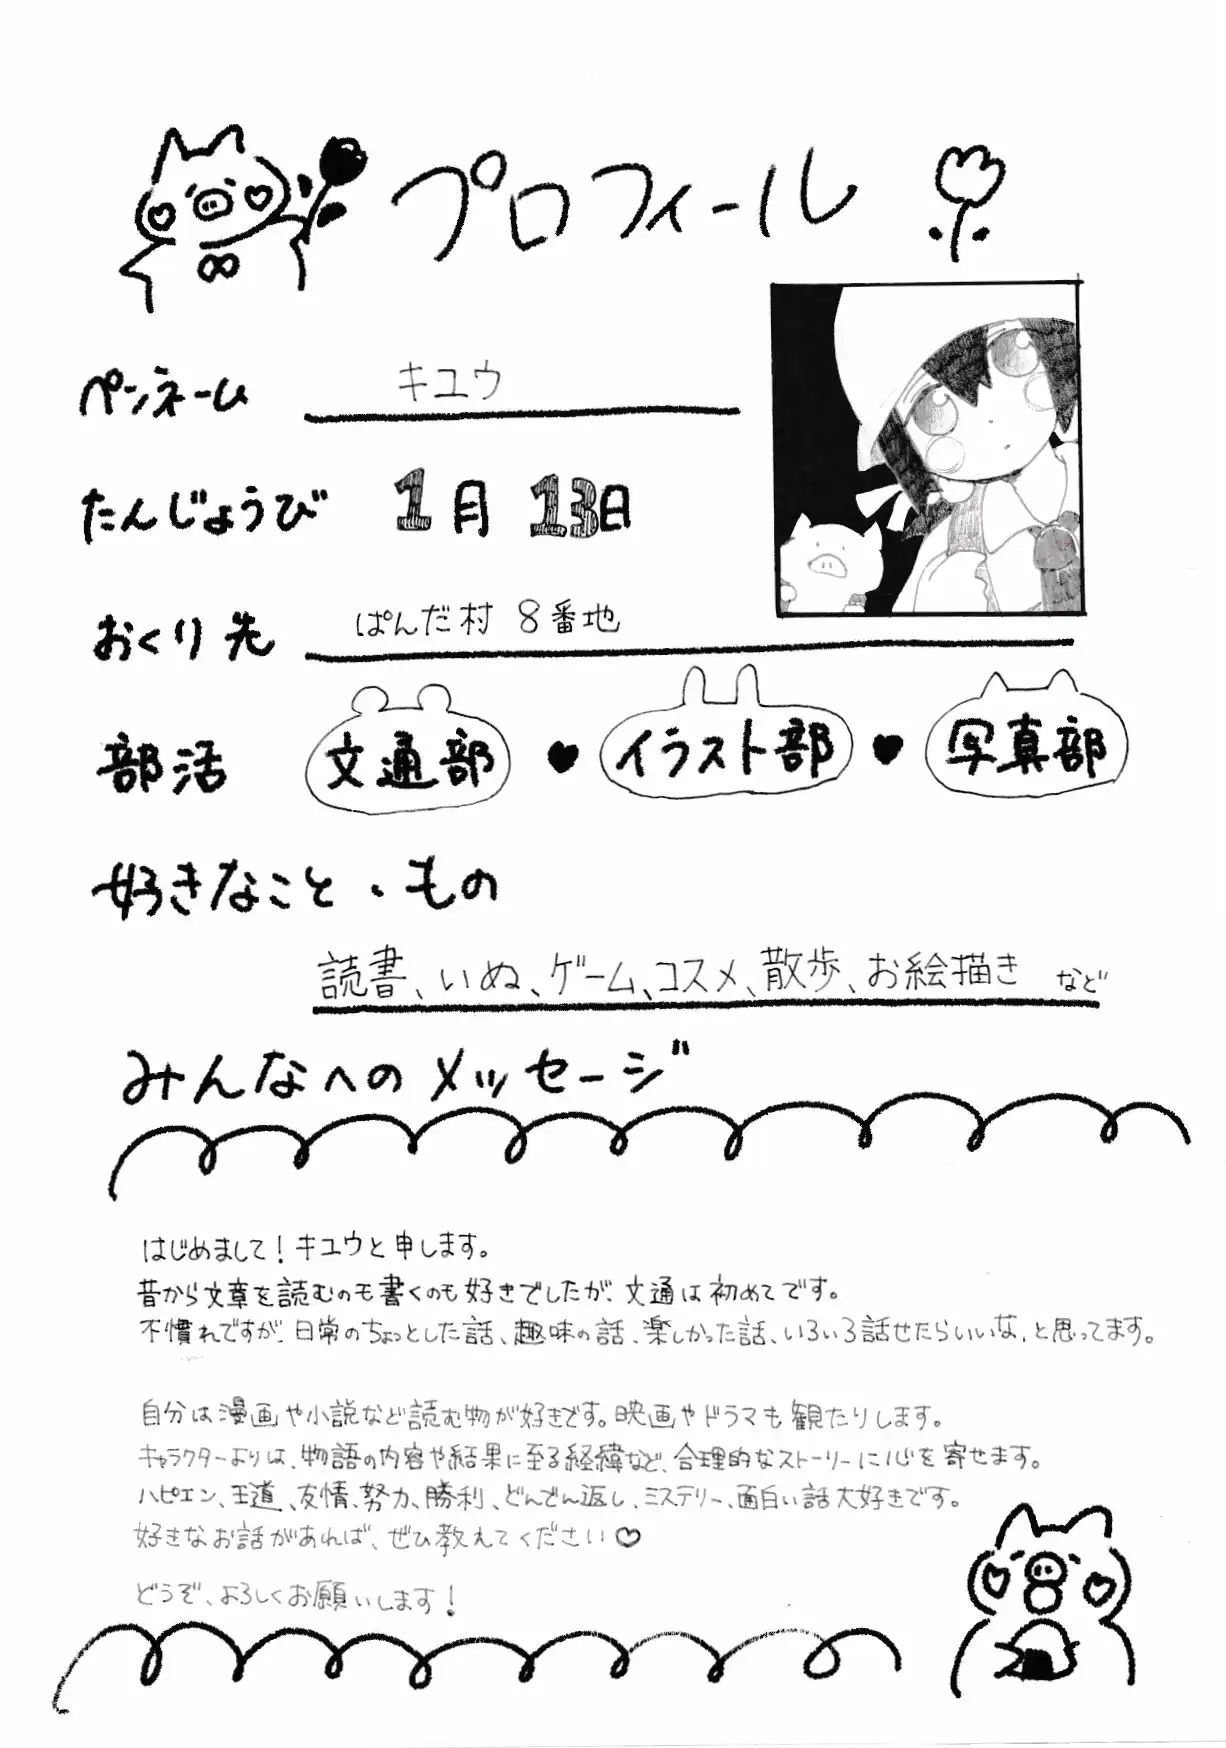 プロフィール
ペンネーム キユウ
たんじょうび 1月 13日
おくり先 ぱんだ村 8番地
部活 文通部 ♥ イラスト部 ♥ 写真部
好きなこと・もの
読書、いぬ、ゲーム、コスメ、散歩、お絵描き など
みんなへのメッセージ
はじめまして!キユウと申します。
昔から文章を読むのも書くのも好きでしたが、文通は初めてです。
不慣れですが、日常のちょっとした話、趣味の話、楽しかった話、いろいろ話せたらいいな、と思ってます。
自分は漫画や小説など読む物が好きです。映画やドラマも観たりします。
キャラクターよりは、物語の内容や結果に至る経緯など、合理的なストーリーに心を寄せます。
ハピエン、王道、友情、努力、勝利、どんでん返し、ミステリー、面白い話大好きです。
好きなお話があれば、ぜひ教えてください♡
どうぞ、よろしくお願いします!